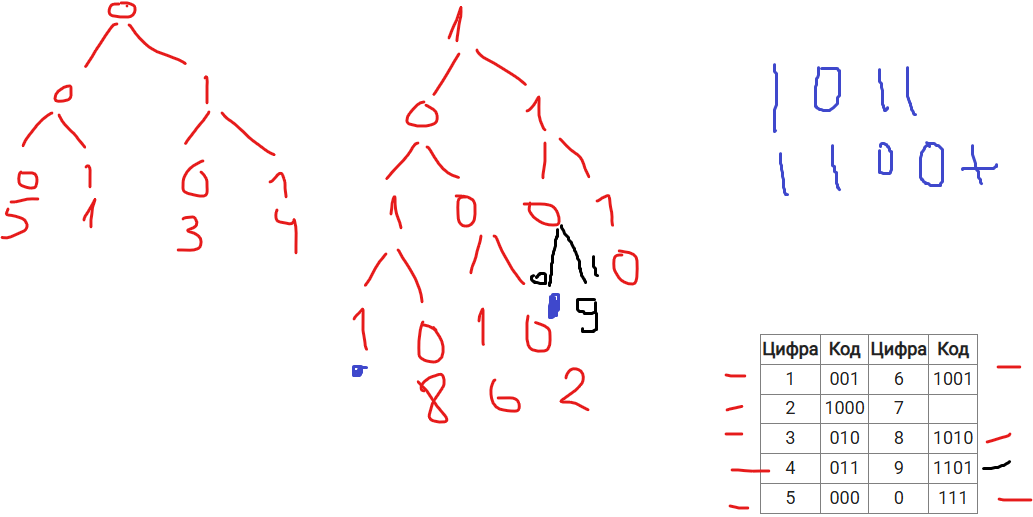 0
1
0
1
0
1
1 0 1 1
1 1 0 0 +
0 1 0 1
5 1 3 4
1 0 0 1
0 1 0
1 0 1 0 9
8 6 2
Цифра Код Цифра Код
1 001 6 1001
2 1000 7
3 010 8 1010
4 011 9 1101
5 000 0 111